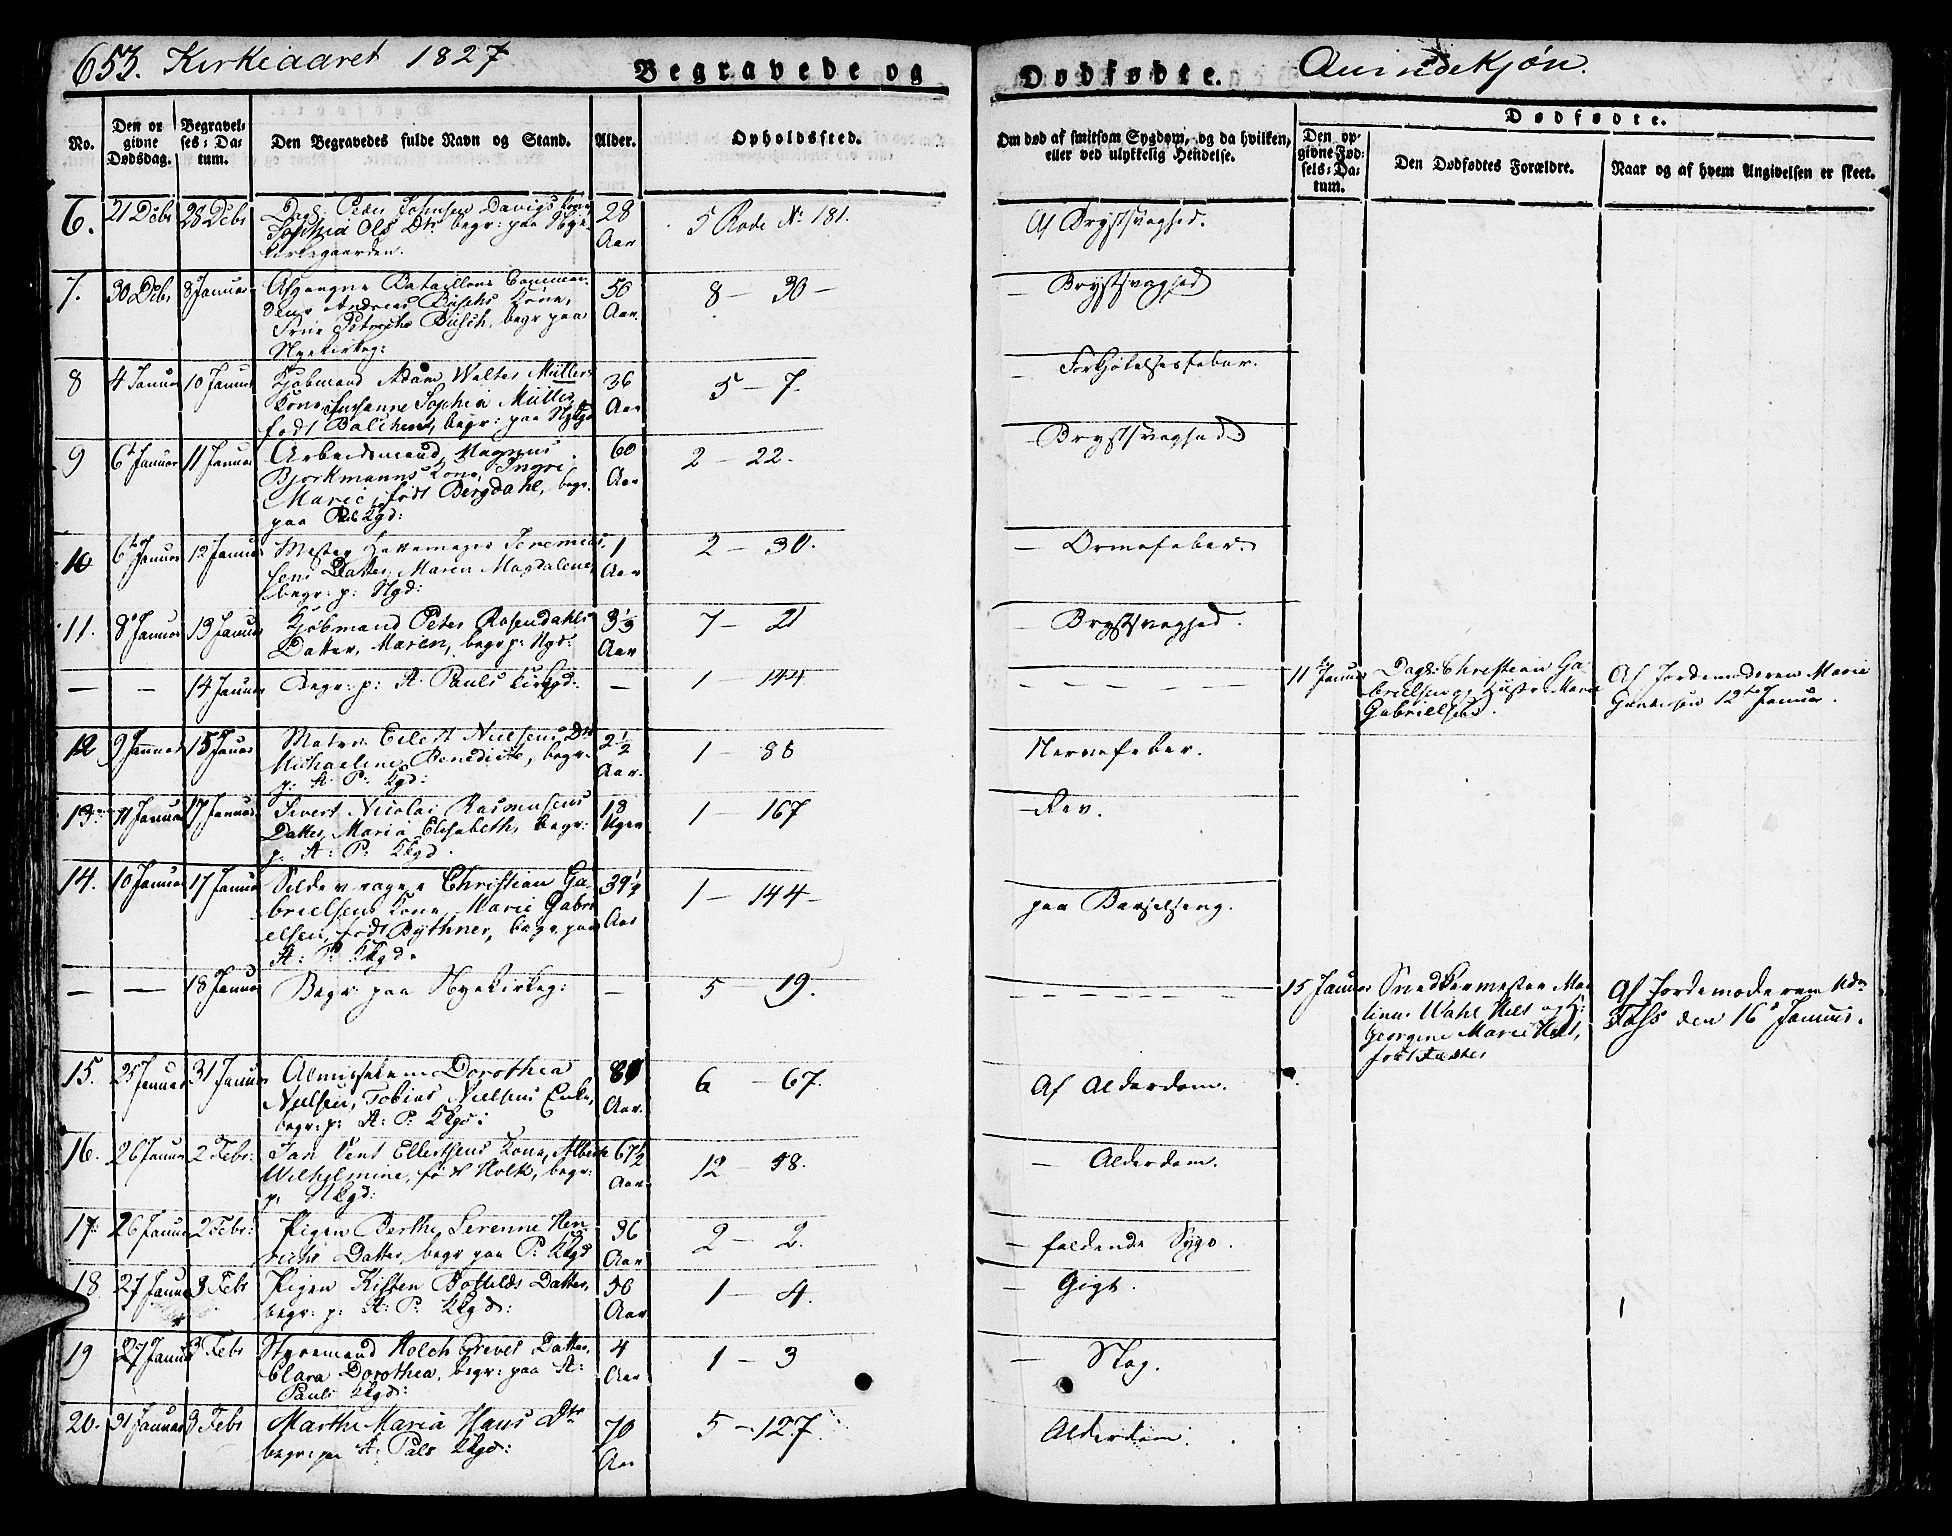 653. Kirkeaaret 1827
Begravede og
Dødfødte.
Quindekjøn.
No.
Den opgivne Dødsdag.
Begravelses-Datum.
Den Begravedes fulde Navn og Stand.
Alder.
Opholdssted.
Om død af smitsom Sygdom, og da hvilken, eller ved ulykkelig Hendelse.
Dødfødte.
Den opgivne Fødsels-Datum.
Den Dødfødtes Forældre.
Naar og af hvem Angivelsen er skeet.
6. 21 Debr 28 Debr Dags. Peder Johnsen Davigs Kone 28 Aar 5 Rode No 181. Af Brystsvaghed.
Sophia Ols Dtr. begr: paa Nye
kirkegaarden.
7. 30 Debr 8 Januar Afgangne Batallons Comman- 50 Aar 8 — 30 — — Brystsvaghed
deur Andreas Büschs Kone,
Büsch, begr paa
Nyekirkeg:
8 4 Januar 10 Januar Kjøbmand Adam Walter Müllers 36 Aar 5 — 7. — Forkjølelsesfeber.
Kone Susanne Sophia Müller
født Balchen, begr: paa
9 6t Januar 11 Januar Arbeidsmand Magnus 60 Aar 2 — 22. — Brystsvaghed
Bjorkmanns Kone, Ingri
Marie, født Bergdahl, begr.
paa Kgd:
10 6te Januar 12 Januar Mester Hattemager Jeremias- 1 Aar 2 — 30. — Ormefeber.
sens Datter, Maren Magdalene,
begr: p: Ngd:
11. 8 Januar 13 Januar Kjøbmand Peter Rosendahls 3 1/3 Aar 7 — 21 — Brystsvaghed.
Datter, Maren, begr p: Ngd:
— — 14 Januar Begr: p: St. Pauls Kirkgd: — 1 — 144 11 Januar Dags. Christian Ga- Af Jordemoderen Marie
brielsen og Hustr. Marie 12te Januar.
Gabrielsen.
12 9 Januar 15 Januar Matr: Eilert Nielsens Dtr 2 1/2 Aar. 1 — 88 Nervefeber.
Michaeline Benedicte, begr.
p: St: P: Kgd:
13. 11 Januar 17 Januar Sivert Nicolai Rasmusens 18 Uger 1 — 167 —
Datter Maria Elisabeth, begr:
p: St: P: Kkgd.
14. 10 Januar 17 Januar Sildevrager Christian Ga- 39 1/2 Aar 1 — 144 — paa Barselseng.
brielsens Kone, Marie Gabri
elsen, født Bythner, begr. paa
St: P: Kkgd.
— — 18 Januar Begr: paa Nyekirkeg: — 5 19. 15 Januar Snedkermester Mar Af Jordemoderen Mdm
tinus Wahl Hell og H: Foss den 16 Januar.
Georgine Marie Hell,
født
15. 25 Januar 31 Januar Almisselem Dorothea 8 Aar. 6 — 67. Af Alderdom.
Nielsen, Tobias Nielsens Enke,
begr: p: St: P: Kkgd:
16. 26 Januar 2 Febr: Jan Vent Ellertsens Kone, Alberte 67 1/2 Aar 12 — 48. — Alderdom.
Wilhelmine, født Holck, begr:
p: Nkgd:
17. 26 Januar 2 Febr: Pigen Berthe Serenne Hen 36 Aar 2 — 2. — faldende Syge.
richs Datter, begr paa P: Kkgd
18. 27 Januar 3 Febr Pigen Kisten Datter, 50 Aar 1 — 4. — Gigt.
begr: p: St: P: Kkgd:
19 27 Januar 3 Febr Styremand Holch Greves Datter, 4 Aar 1 — 3 — Slag.
Clara Dorothea, begr: paa St:
Pauls Kkgd:
20. 31 Januar 3 Febr Marthe Maria Hans Dtr 70 Aar 5 — 127. Alderdom.
begr: paa St: Pals Kkgd: